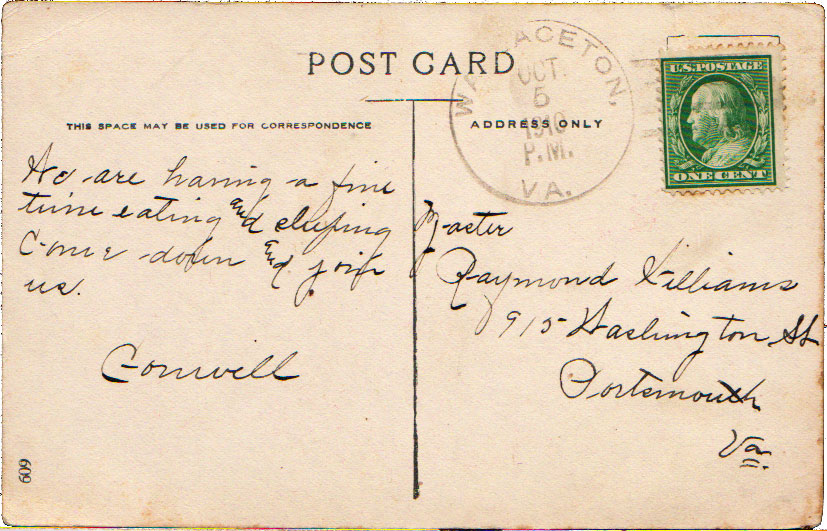 POST CARD
THIS SPACE MAY BE USED FOR CORRESPONDENCE
ADDRESS ONLY
ACETON,
OCT.
5
1910
P.M.
VA.
U.S. POSTAGE
ONE CENT
We are having a fine
time eating and sleeping
Come down and join
us.
Master
Raymond Williams
915 Washington St
Portsmouth
Va.
609